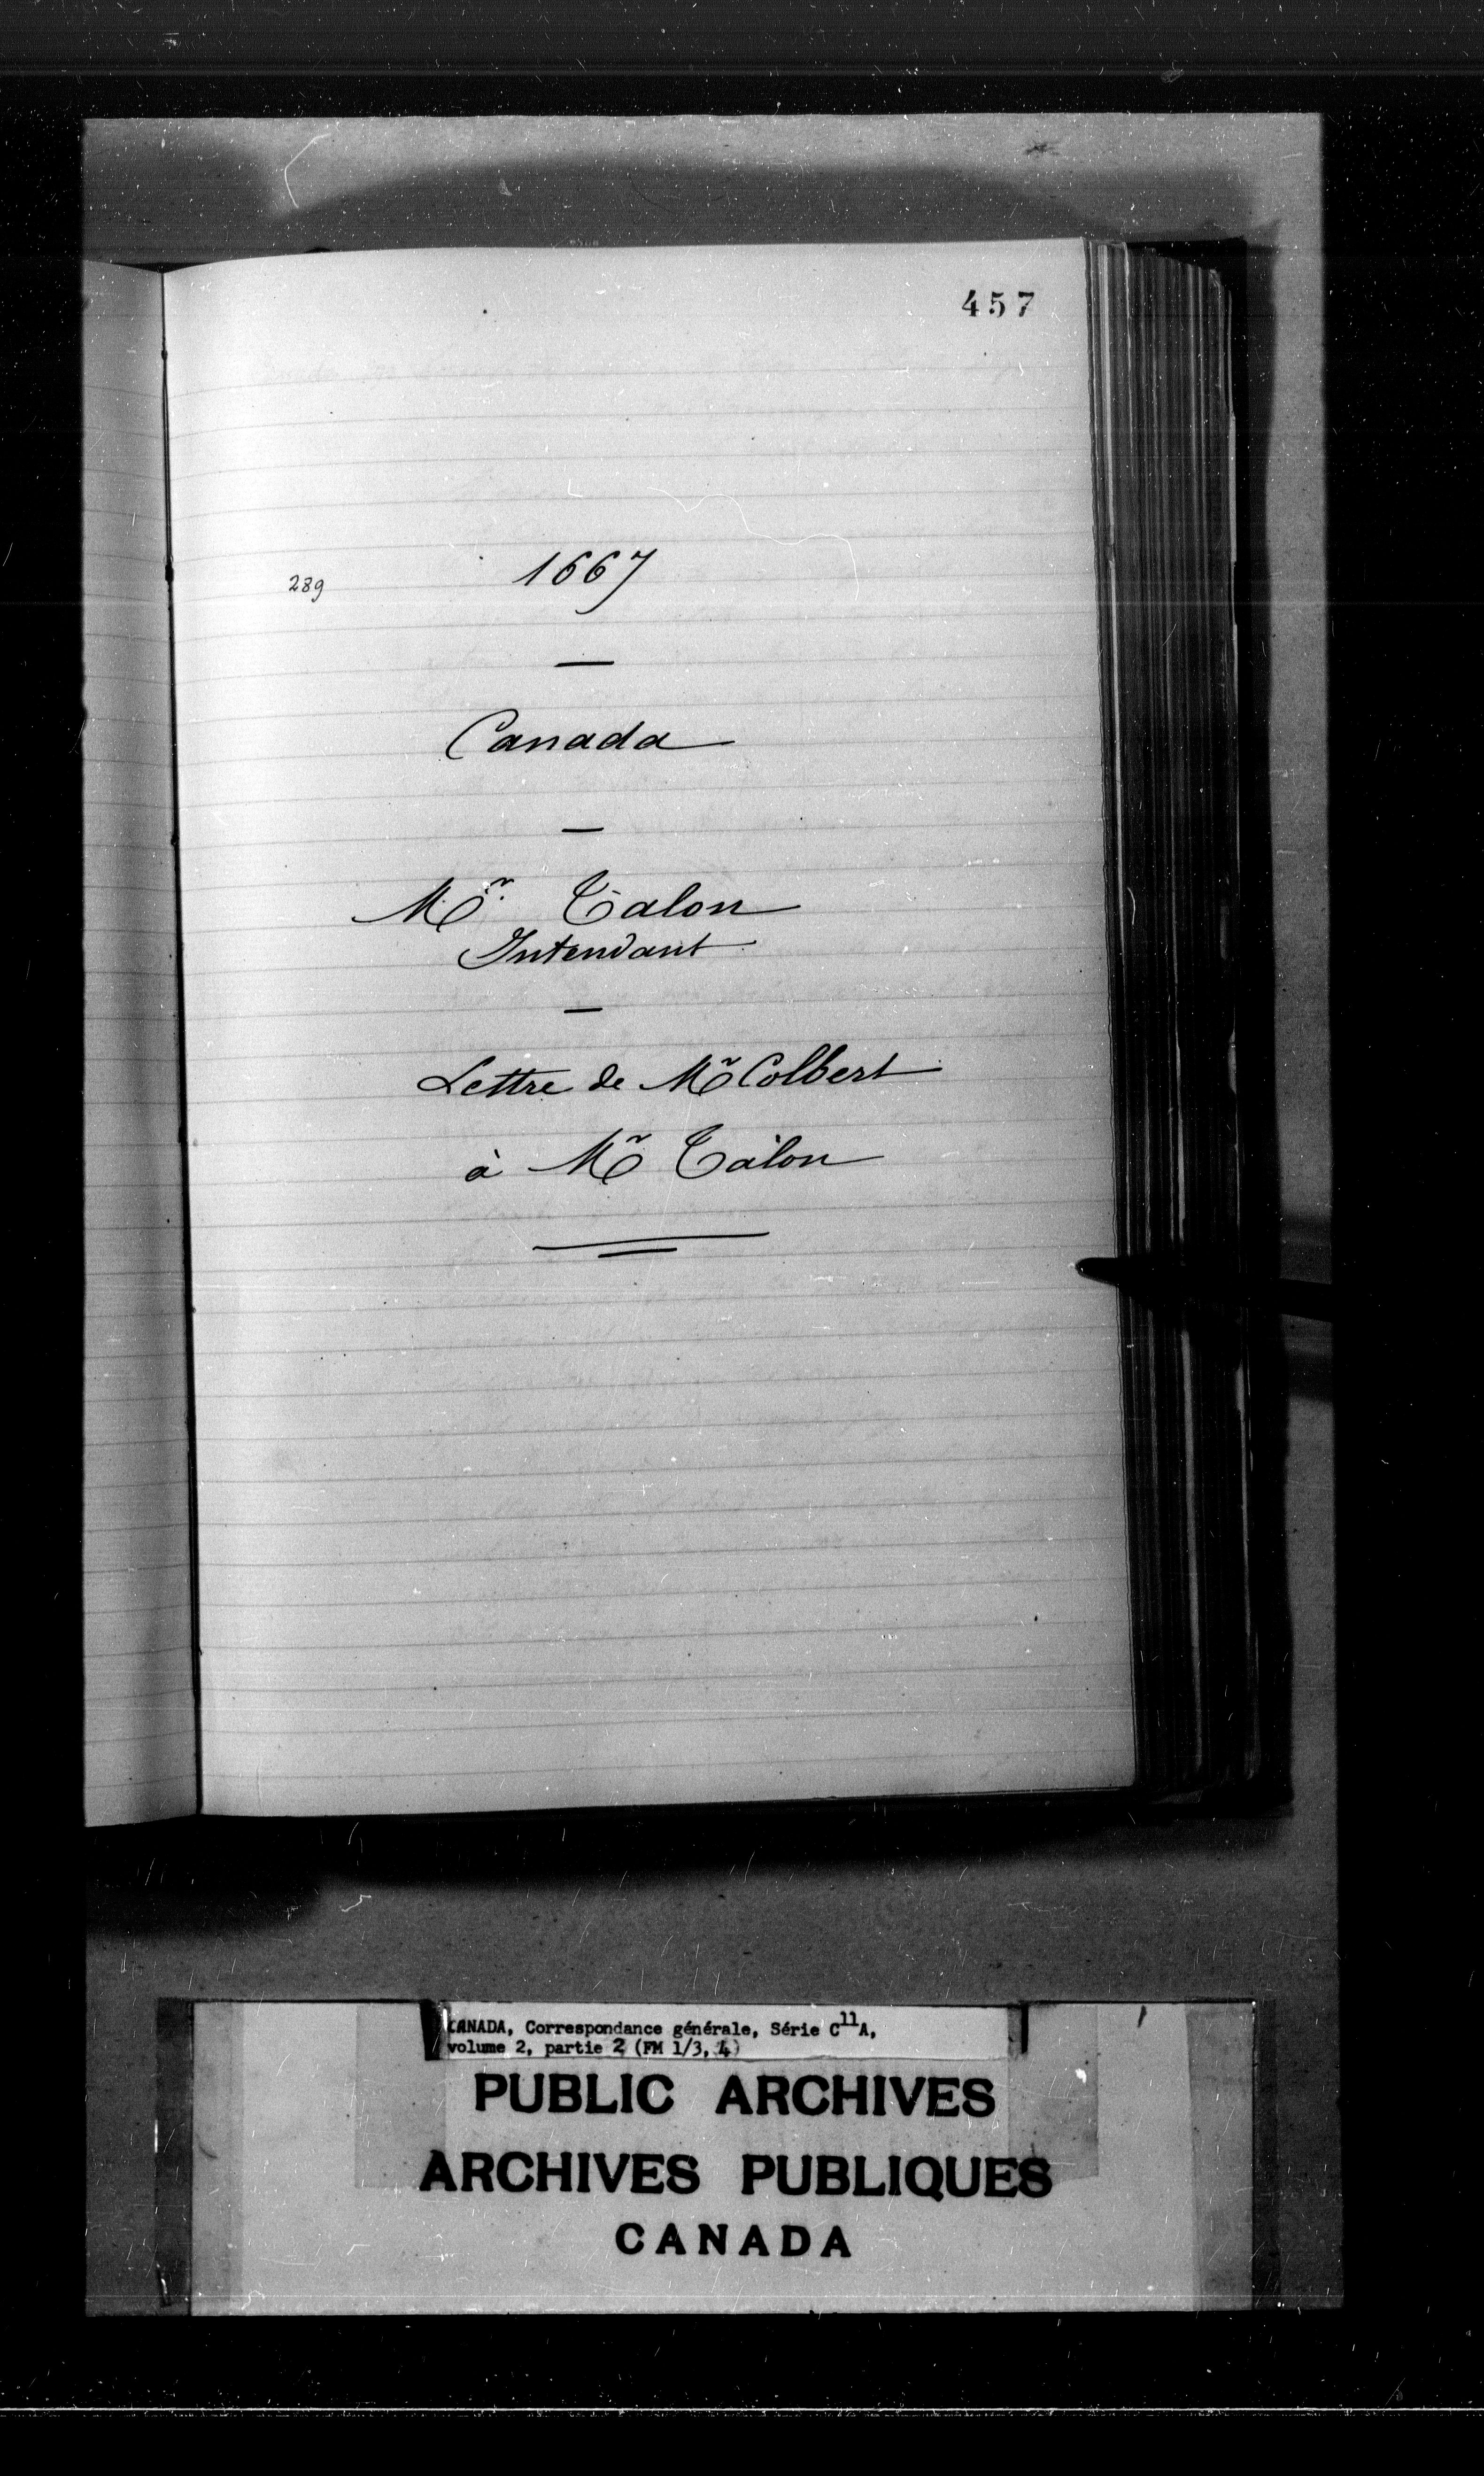 457
1667
289
Canada
Mr. Talon
Intendant
Lettre de Mr Colbert
à Mr Talon
CANADA, Correspondance générale, Série C11A,
volume 2, partie 2 (FM 1/3, 4)
PUBLIC ARCHIVES
ARCHIVES PUBLIQUES
CANADA